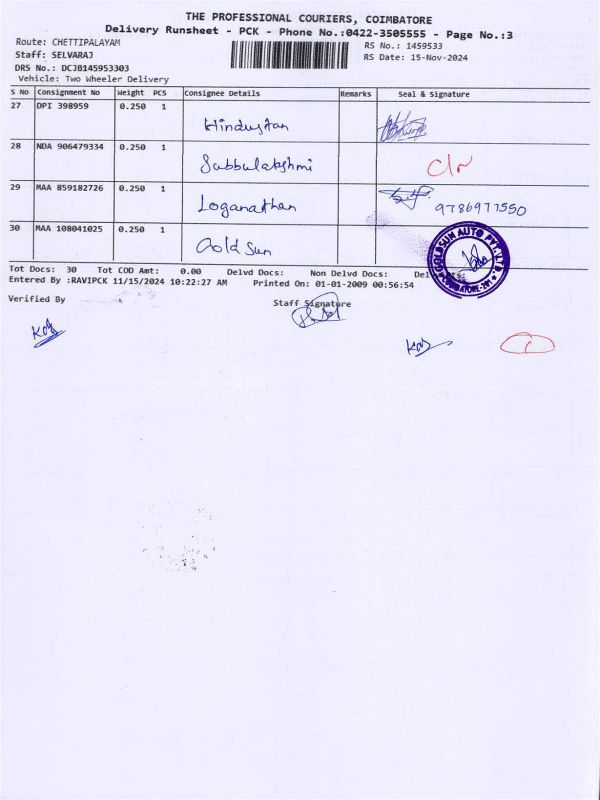 THE PROFESSIONAL COURIERS, COIMBATORE
Delivery Runsheet - PCK - Phone No.:0422-3505555 - Page No.:3
Route: CHETTIPALAYAM
RS No.: 1459533
Staff: SELVARAJ
RS Date: 15-Nov-2024
DRS No.: DCJB145953303
Vehicle: Two Wheeler Delivery
S No Consignment No Weight PCS Consignee Details Remarks Seal & Signature
27 DPI 398959 0.250 1 Hindustan
28 NDA 906479334 0.250 1 Subbulakshmi
29 MAA 859182726 0.250 1 Loganathan 9786977550
30 MAA 108041025 0.250 1 Gold Sun
GOLDSUN AUTO PVT. LTD.
COIMBATORE
Tot Docs: 30 Tot COD Amt: 0.00 Delvd Docs: Non Delvd Docs:
Entered By :RAVIPCK 11/15/2024 10:22:27 AM Printed On: 01-01-2009 00:56:54
Verified By
Staff Signature